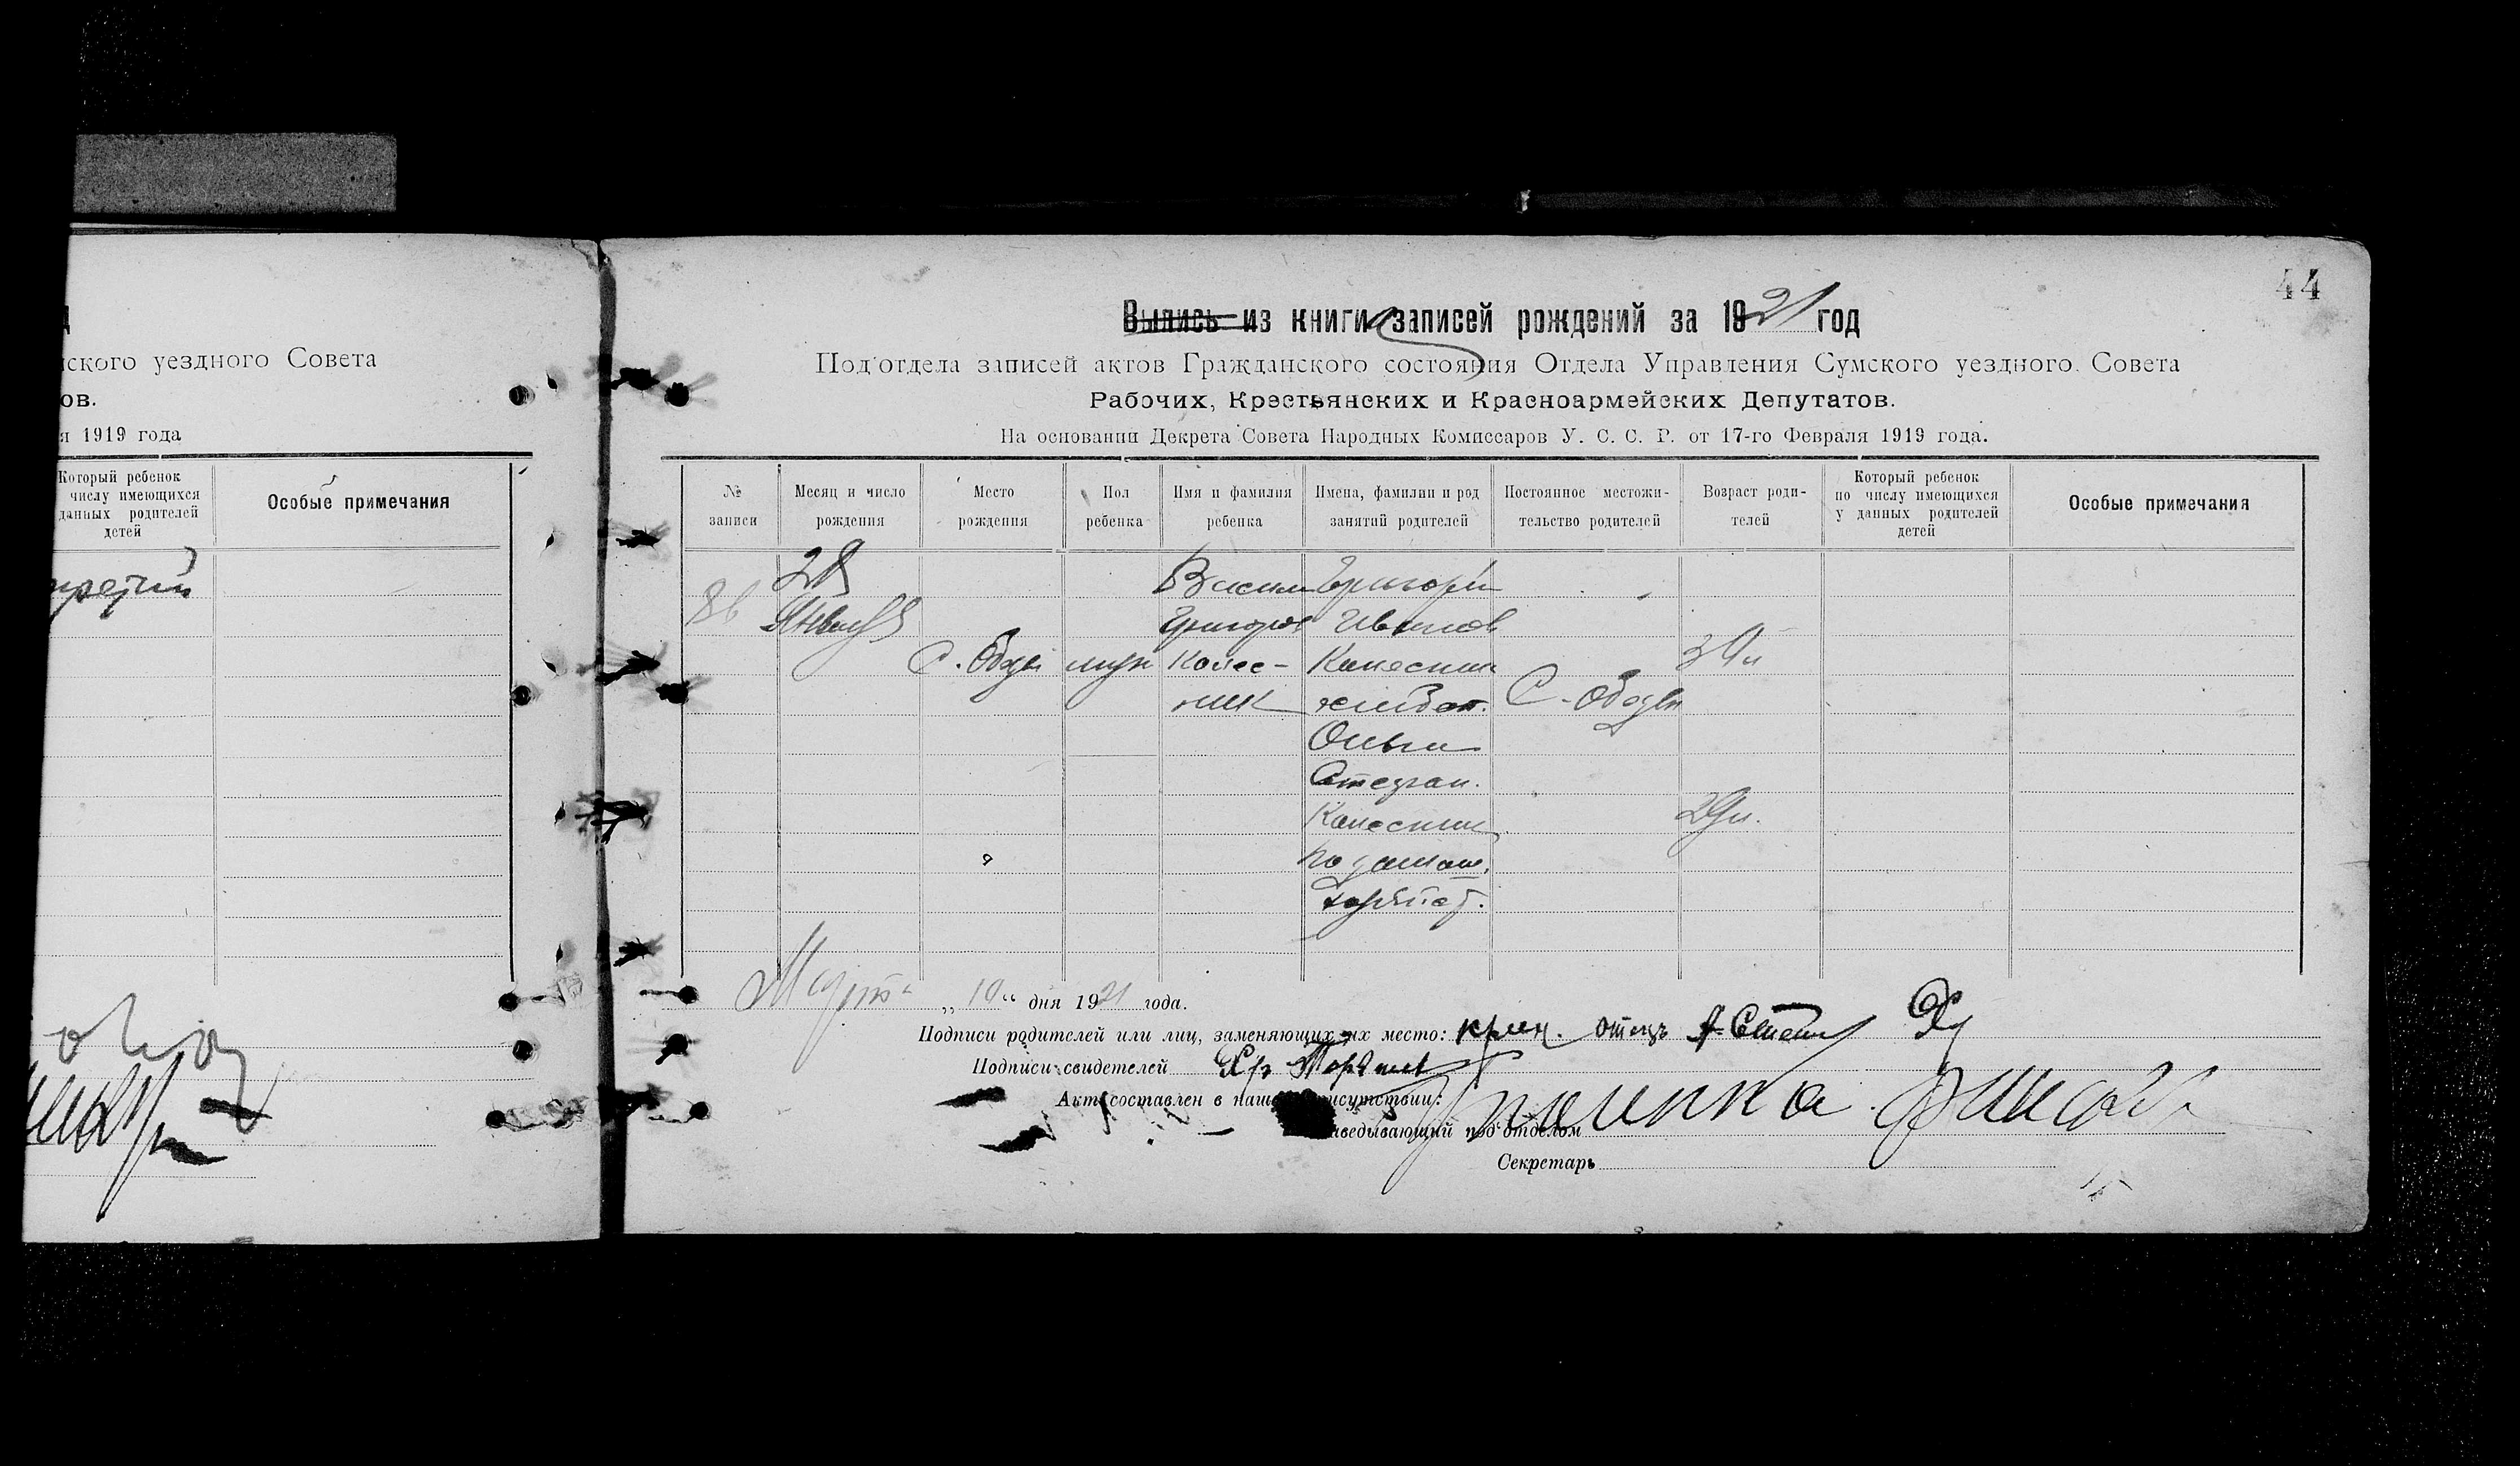 ского уездного Совета
ов.
я 1919 года
Который ребенок
числу имеющихся
данных родителей
детей
Особые примечания
третий
44
Выпись из книги записей рождений за 1921 год
Под'отдела записей актов Гражданского состояния Отдела Управления Сумского уездного Совета
Рабочих, Крестьянских и Красноармейских Депутатов.
На основании Декрета Совета Народных Комиссаров У. С. С. Р. от 17-го Февраля 1919 года.
№ записи
Месяц и число рождения
Место рождения
Пол ребенка
Имя и фамилия ребенка
Имена, фамилии и род занятий родителей
Постоянное местожительство родителей
Возраст родителей
Который ребенок по числу имеющихся у данных родителей детей
Особые примечания
86
28 Января
С. Ободы
муж
Васили
Григоров
Колес-
ник
Григорий
Иванов
Колесник
хлебоп.
Ольга
Стефан.
Колесник
по домаш.
хозяйст.
С. Ободы
29 л.
Март „10“ дня 1921 года.
Подписи родителей или лиц, заменяющих их место: отецъ
Подписи свидетелей
Акт составлен в нашем присутствии:
Заведывающий под'отделом
Секретарь